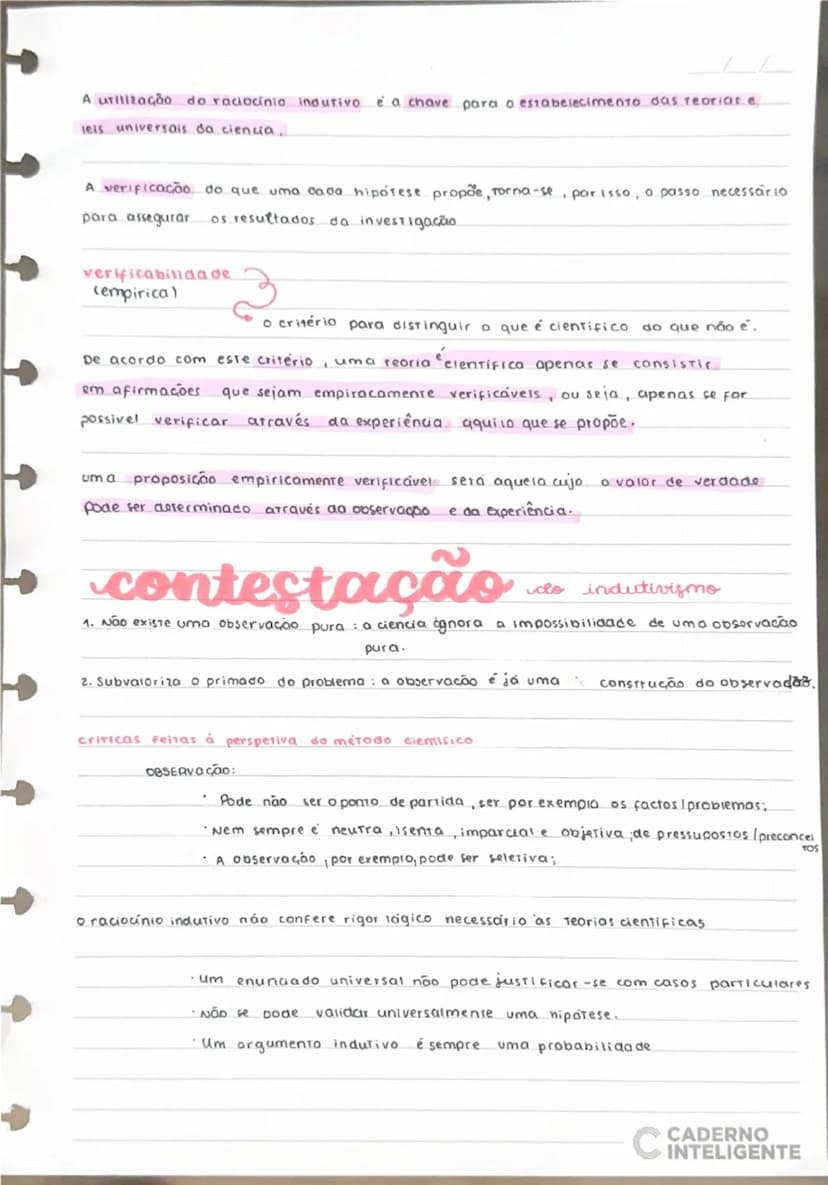 A utilização do raciocínio indutivo é a chave para o estabelecimento das teorias e
leis universais da ciencia.
A verificação do que uma cada hipótese propõe, torna-se, por isso, o passo necessário
para assegurar os resultados da investigação
verificabilidade
(empirica)
o critério para distinguir o que é cientifico do que não é.
De acordo com este critério, uma teoria é cientifica apenas se consistir
em afirmações que sejam empiracamente verificáveis, ou seja, apenas se for
possivel verificar através da experiência aquilo que se propõe.
uma proposição empiricamente verificável será aquela cujo o valor de verdade
pode ser determinado através da observação e da experiência.
contestação do indutivismo
1. Não existe uma observação pura: a ciencia ignora a impossibilidade de uma observação
pura.
2. Subvaloriza o primado do problema: a observacão é já uma construção do observador.
criticas feitas á perspetiva do método cientifico
OBSERVAÇÃO:
· Pode não ser o ponto de partida, ser por exemplo os factos/problemas;
· Nem sempre é neutra, isenta, imparcial e objetiva; de pressupostos/preconcei
tos
· A observação, por exemplo, pode ser seletiva;
o raciocínio indutivo não confere rigor lógico necessário às teorias científicas
· um enunciado universal não pode justificar-se com casos particulares
· Não se pode validar universalmente uma hipótese.
· Um argumento indutivo é sempre uma probabilidade
CADERNO
INTELIGENTE